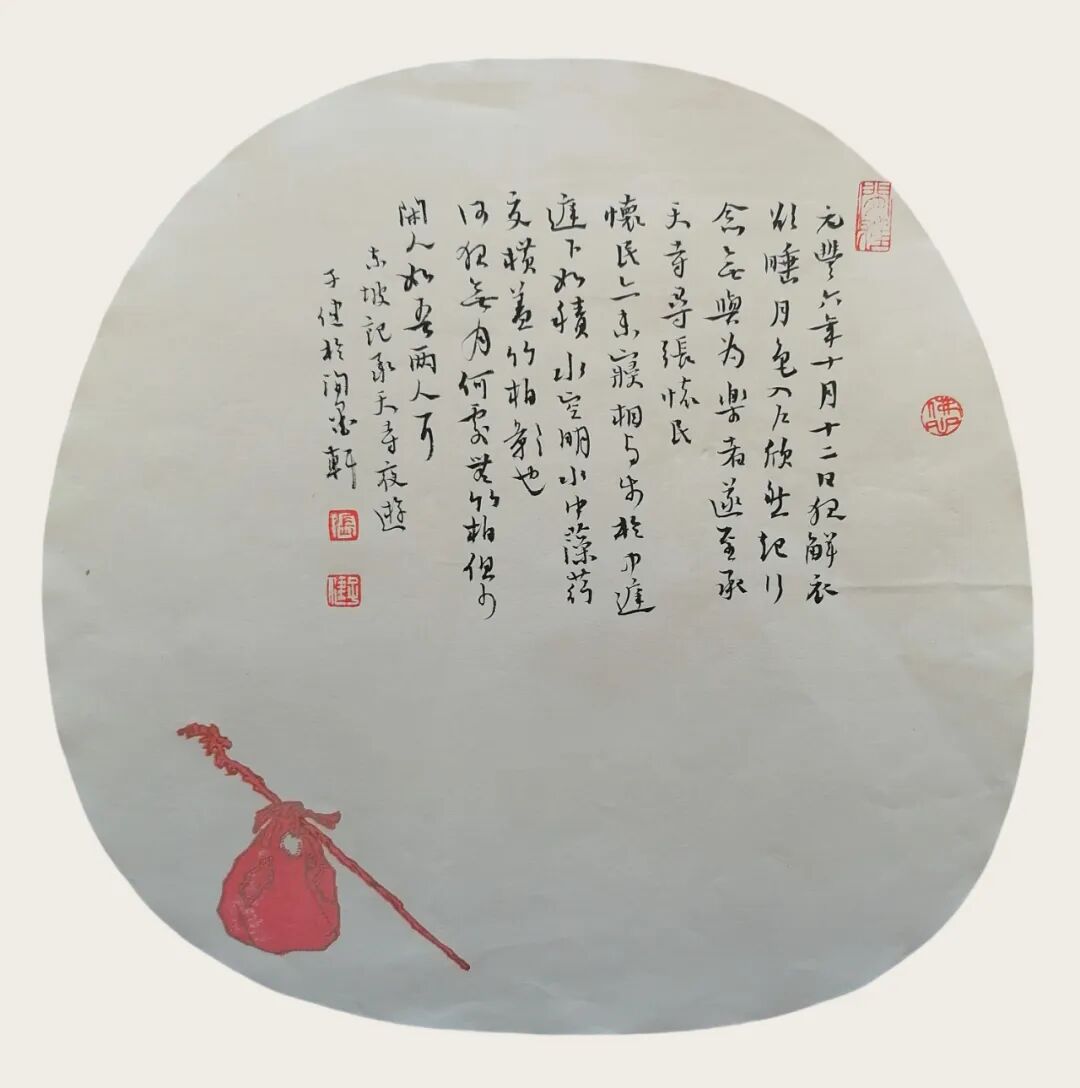 元豐六年十月十二日夜解衣
欲睡月色入户欣然起行
念無與為樂者遂至承
天寺尋張懷民
懷民亦未寢相与步於中庭
庭下如積水空明水中藻荇
交横蓋竹柏影也
何夜無月何處無竹柏但少
閑人如吾兩人耳
東坡記承天寺夜遊
子健於墨軒